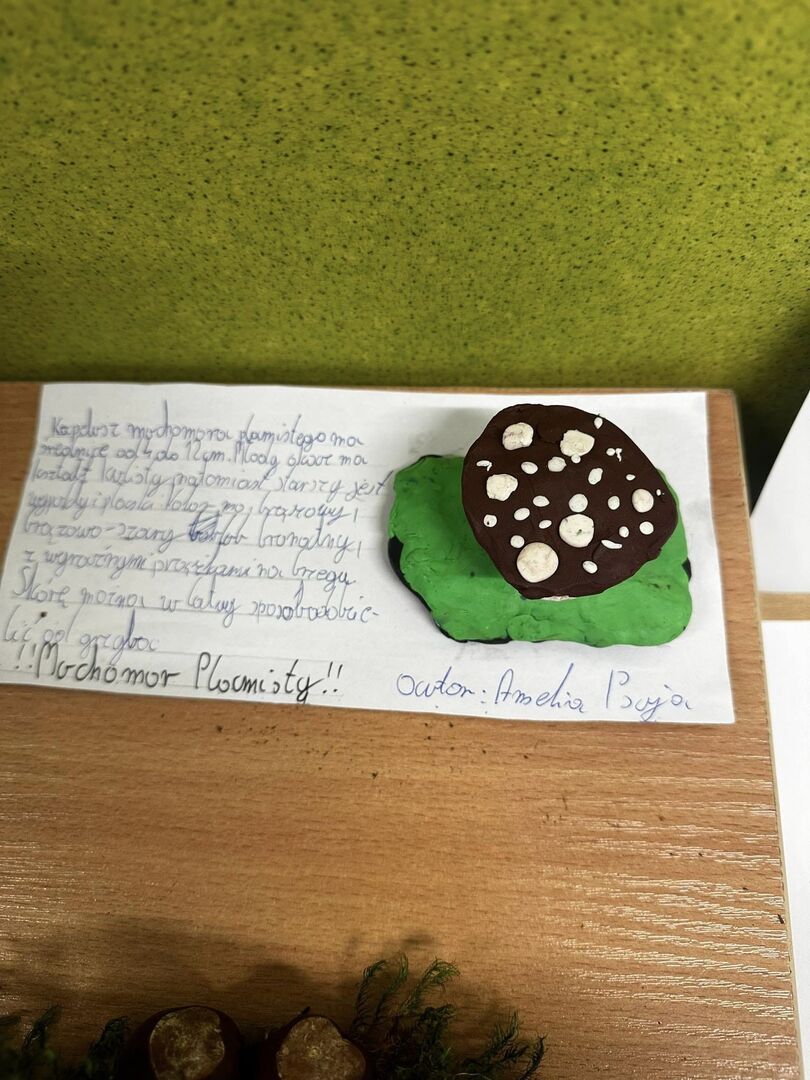 Kapelusz muchomora plamistego ma
średnicę od 4 do 12 cm. Młody okaz ma
kształt kulisty natomiast starszy jest
wypukły i płaski kolor ma brązowy,
brązowo-szary
z wyraźnymi prążkami na brzegu
Skórę można w łatwy sposób odzie-
lić od grzyba
!!Muchomor Plamisty!!
autor: Amelia